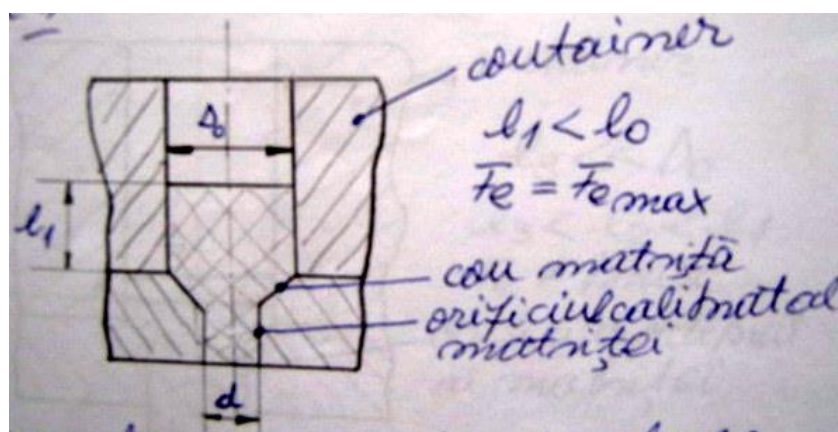 container
Δ₀
l₁ < l₀
Fe = Fe max
l₁
con matriță
orificiul calibrat al
matriței
d